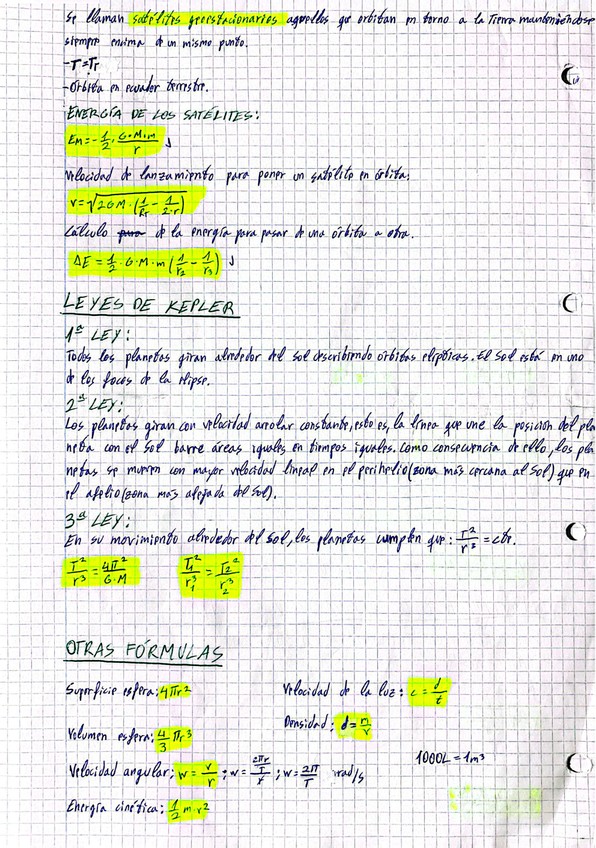 Se llaman satélites geoestacionarios aquellos que orbitan en torno a la Tierra manteniéndose
siempre encima de un mismo punto.
-T=Tr
-Órbita en ecuador terrestre.
ENERGÍA DE LOS SATÉLITES:
Em=-1/2·G·M·m/r J
Velocidad de lanzamiento para poner un satélite en órbita:
v=√2GM·(1/RT - 1/2·r)
Cálculo para de la energía para pasar de una órbita a otra.
ΔE=1/2·G·M·m(1/r2 - 1/r3) J
LEYES DE KEPLER
1ª LEY:
Todos los planetas giran alrededor del sol describiendo órbitas elípticas. El Sol está en uno
de los focos de la elipse.
2ª LEY:
Los planetas giran con velocidad areolar constante, esto es, la línea que une la posición del pla
neta con el Sol barre áreas iguales en tiempos iguales. Como consecuencia de ello, los pla
netas se mueven con mayor velocidad lineal en el perihelio (zona más cercana al Sol) que en
el afelio (zona más alejada del Sol).
3ª LEY:
En su movimiento alrededor del Sol, los planetas cumplen que: T²/r³=cte.
T²/r³=4π²/G·M T1²/r1³=T2²/r2³
OTRAS FÓRMULAS
Superficie esfera: 4πr² Velocidad de la luz: c=d/t
Densidad: d=m/v
Volumen esfera: 4/3πr³
Velocidad angular: w=v/r; w=2πr/T/r; w=2π/T rad/s 1000L=1m³
Energía cinética: 1/2m·v²